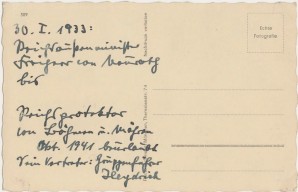 30. I. 1933:
Reichsaussenminister
Freiherr von Neurath
bis
Reichsprotektor
von Böhmen u. Mähren
Okt. 1941 beurlaubt
Sein Vertreter: Gruppenführer
Heydrich
Echte
Fotografie